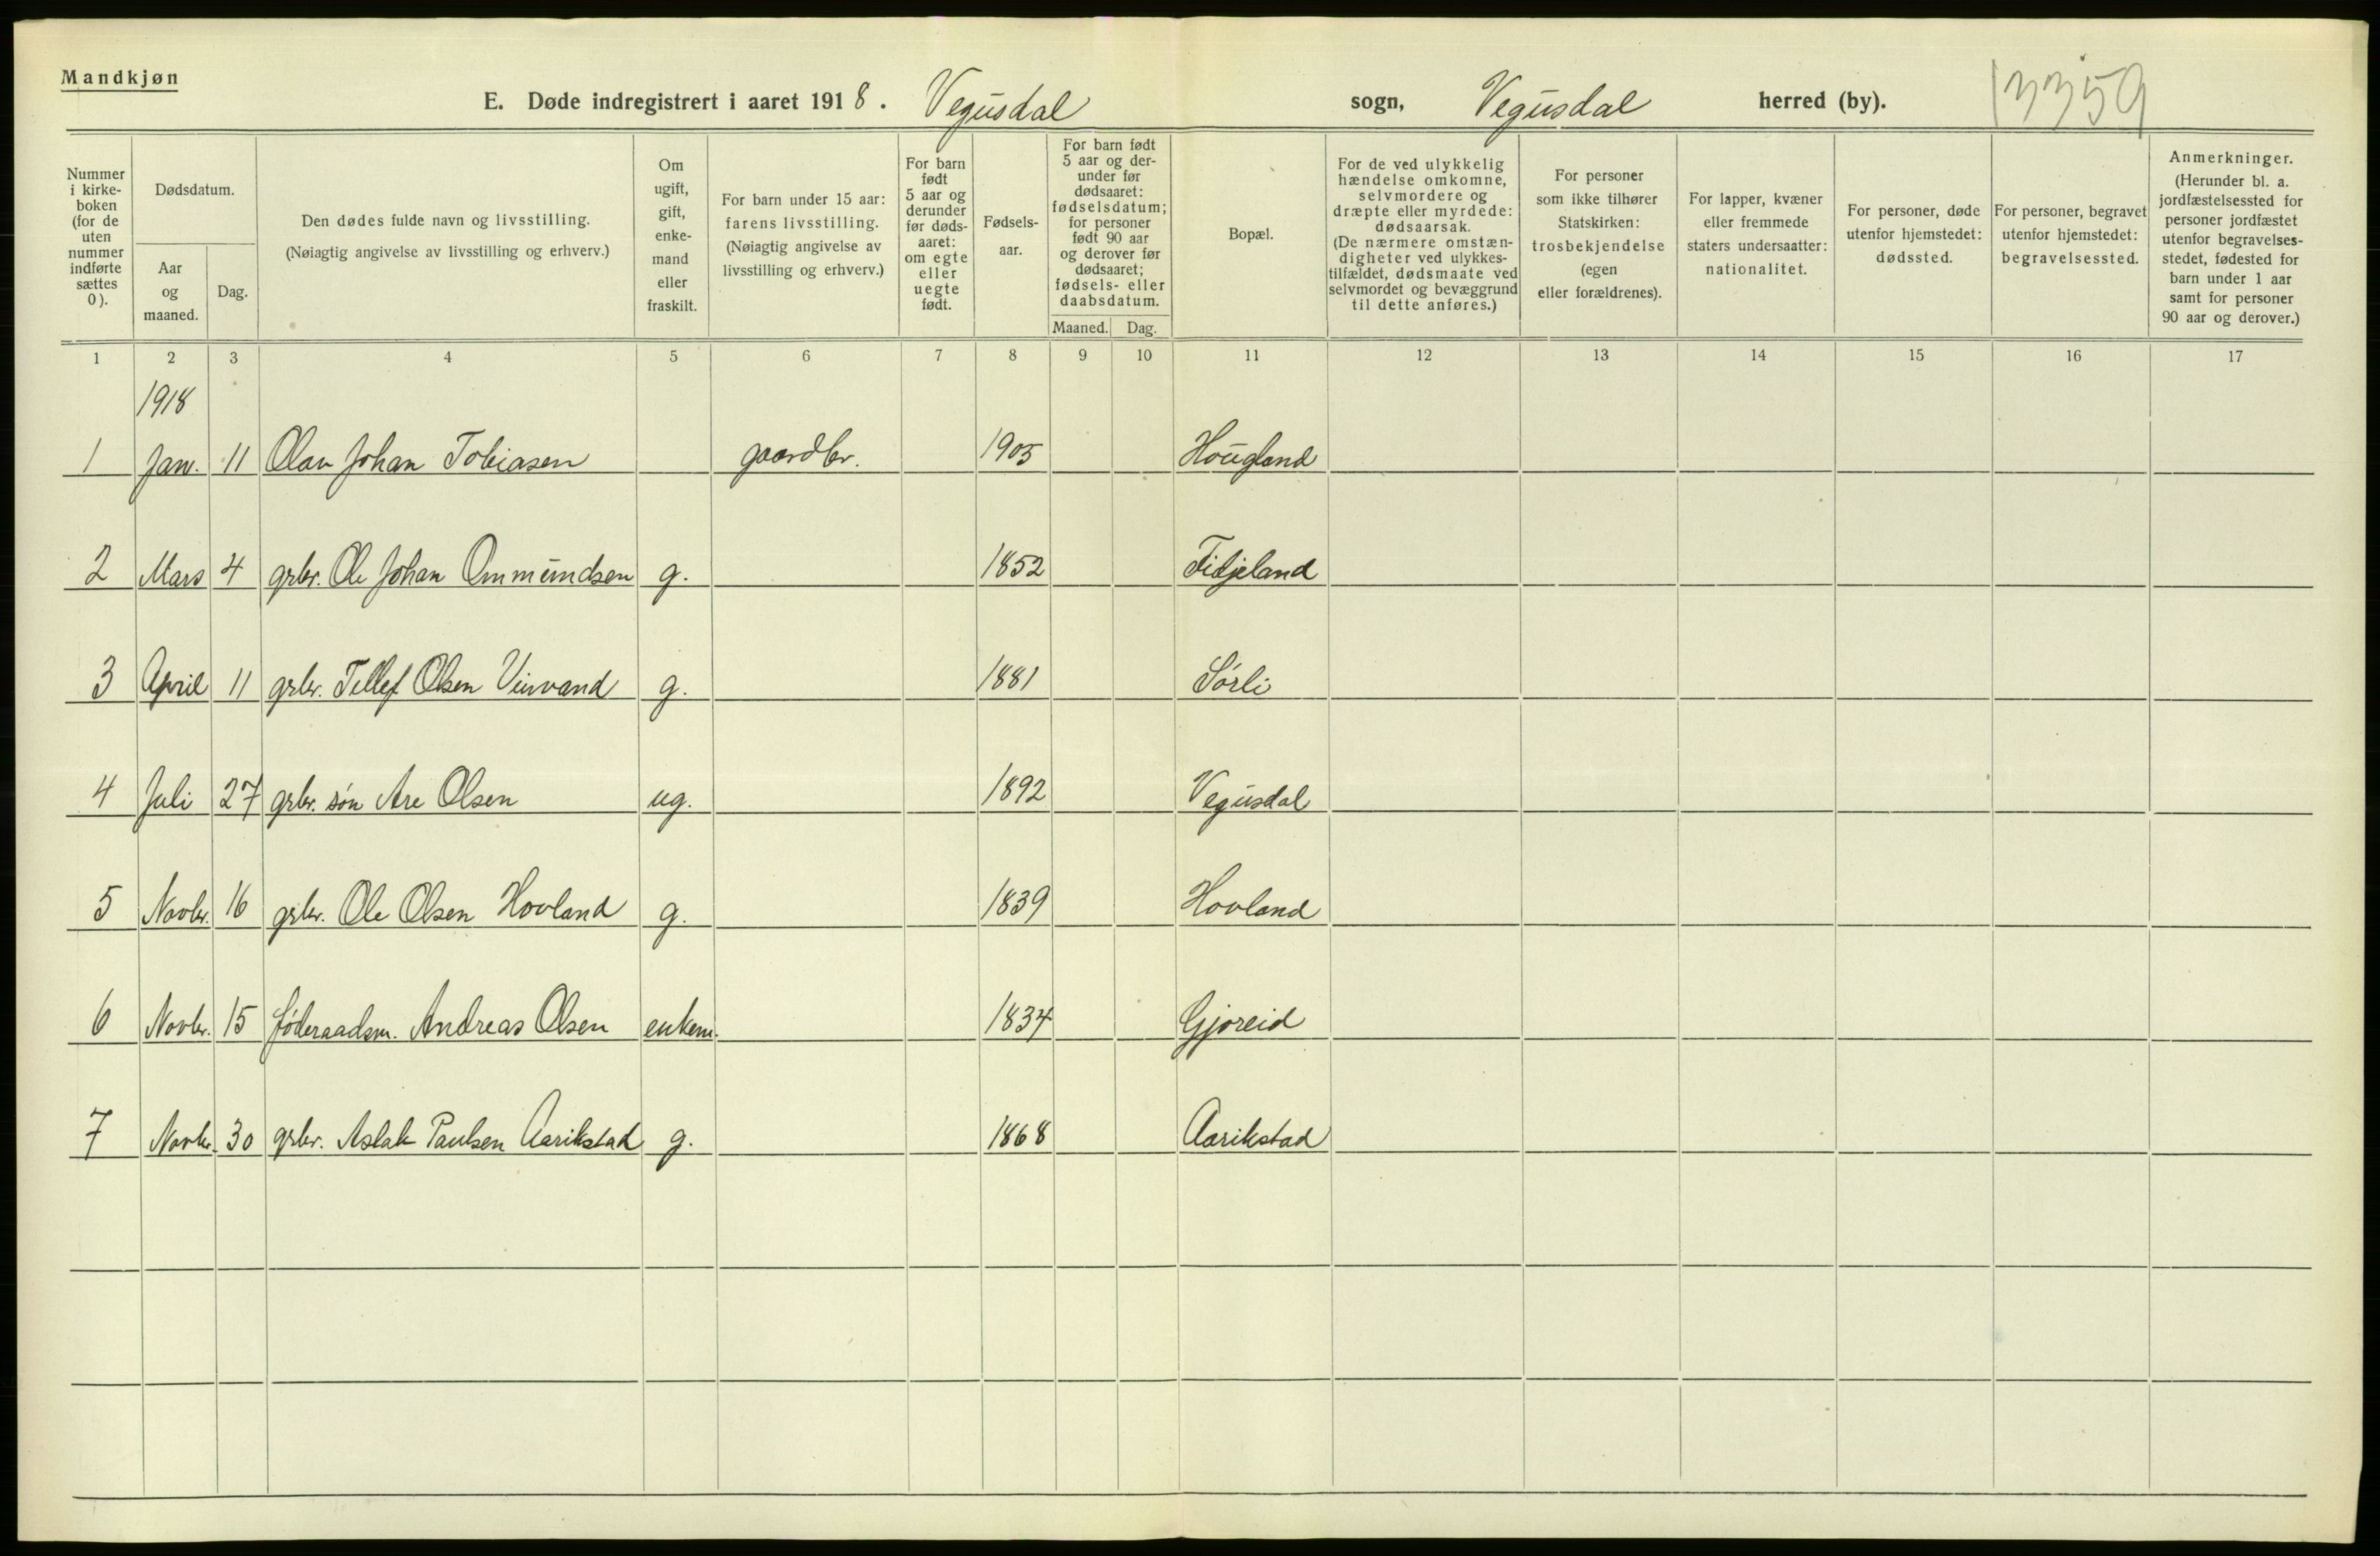 Mandkjøn
E. Døde indregistrert i aaret 1918. Vegusdal sogn, Vegusdal herred (by). 13359
Nummer i kirke- boken (for de uten nummer indførte sættes 0).
Dødsdatum.
Aar og maaned.
Dag.
Den dødes fulde navn og livsstilling.
(Nøiagtig angivelse av livsstilling og erhverv.)
Om ugift, gift, enke- mand eller fraskilt.
For barn under 15 aar: farens livsstilling. (Nøiagtig angivelse av livsstilling og erhverv.)
For barn født 5 aar og derunder før døds- aaret: om egte eller uegte født.
Fødsels- aar.
For barn født 5 aar og der- under før dødsaaret: fødselsdatum; for personer født 90 aar og derover før dødsaaret; fødsels- eller daabsdatum.
Maaned. Dag.
Bopæl.
For de ved ulykkelig hændelse omkomne, selvmordere og dræpte eller myrdede: dødsaarsak. (De nærmere omstæn- digheter ved ulykkes- tilfældet, dødsmaate ved selvmordet og bevæggrund til dette anføres.)
For personer som ikke tilhører Statskirken: trosbekjendelse (egen eller forældrenes).
For lapper, kvæner eller fremmede staters undersaatter: nationalitet.
For personer, døde utenfor hjemstedet: dødssted.
For personer, begravet utenfor hjemstedet: begravelsessted.
Anmerkninger. (Herunder bl. a. jordfæstelsessted for personer jordfæstet utenfor begravelses- stedet, fødested for barn under 1 aar samt for personer 90 aar og derover.)
1 2 3 4 5 6 7 8 9 10 11 12 13 14 15 16 17
1918
1 Jan. 11 Olav Johan Tobiasen gaardbr. 1905 Hougland
2 Mars 4 grbr. Ole Johan Ommundsen g. 1852 Fidjeland
3 April 11 grbr. Tellef Olsen Vinvand g. 1881 Sørli
4 Juli 27 grbr. søn Are Olsen ug. 1892 Vegusdal
5 Novbr. 16 grbr. Ole Olsen Hovland g. 1839 Hovland
6 Novbr. 15 føderaadsm. Andreas Olsen enkem. 1834 Gjoreid
7 Novbr. 30 grbr. Aslak Paulsen Aarikstad g. 1868 Aarikstad